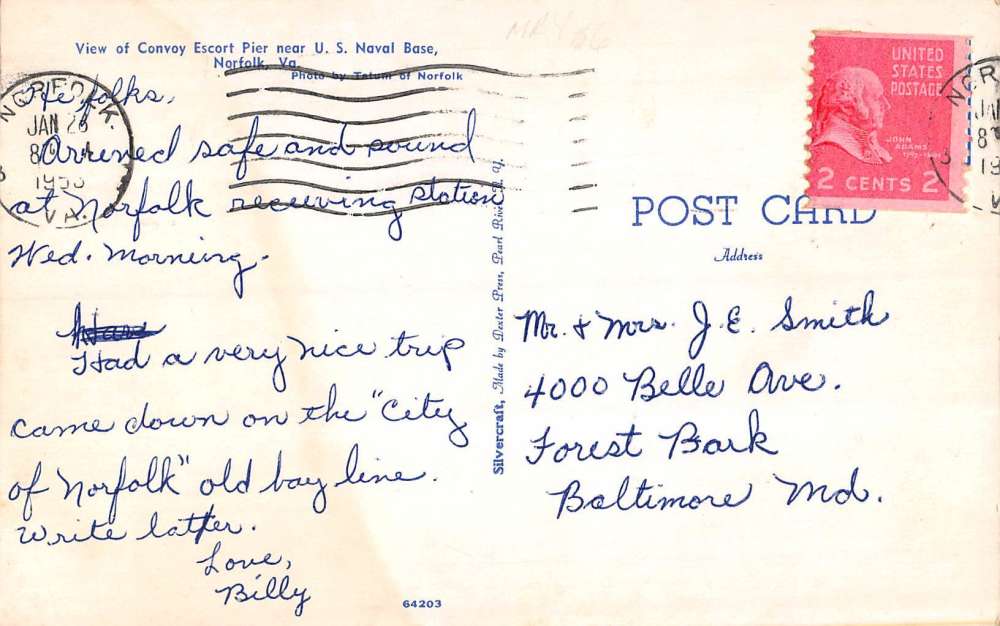 View of Convoy Escort Pier near U. S. Naval Base,
Norfolk, Va.
Photo by Tatum of Norfolk
NORFOLK.
JAN 23
8
1953
VA.
Hi folks,
Arrived safe and sound
at Norfolk receiving station
Wed. Morning.
Had a very nice trip
came down on the "City
of Norfolk" old bay line.
Write latter.
Love,
Billy
64203
Silvercraft, Made by Dexter Press, Pearl River, N. Y.
UNITED
STATES
POSTAGE
JOHN
ADAMS
2 CENTS 2
POST CARD
Address
Mr. & Mrs. J. E. Smith
4000 Belle Ave.
Forest Park
Baltimore Md.